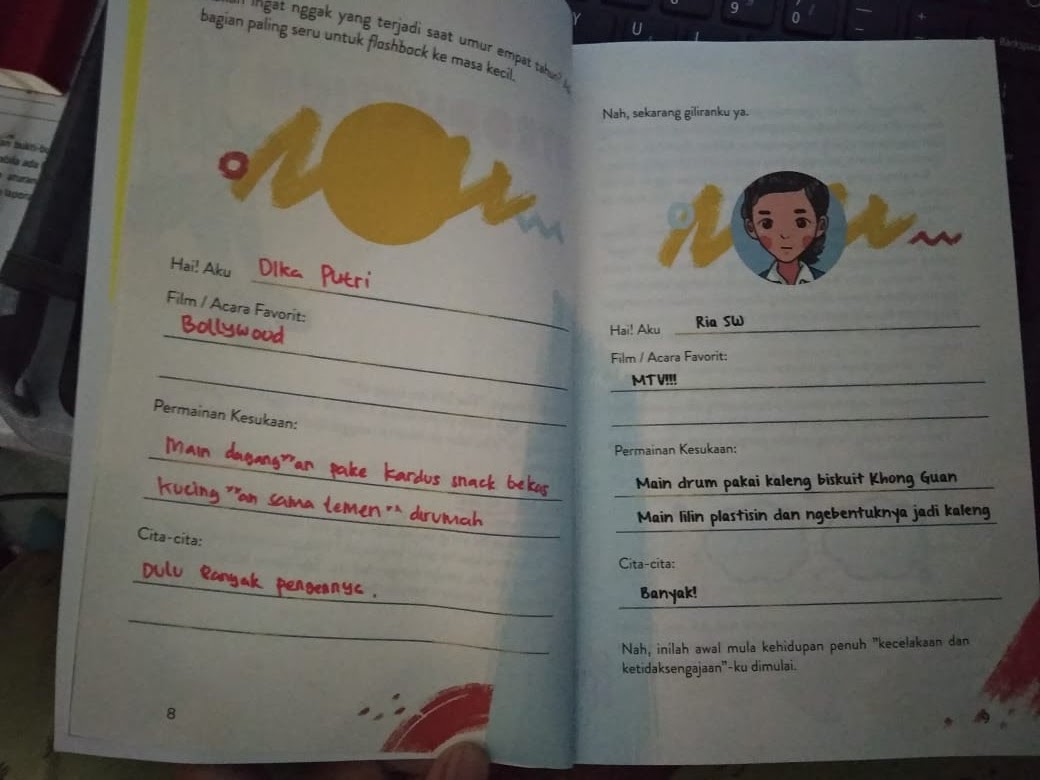 ingat nggak yang terjadi saat umur empat tahun?
bagian paling seru untuk flashback ke masa kecil.
Hai! Aku Dika Putri
Film / Acara Favorit:
Bollywood
Permainan Kesukaan:
Main dagang""an pake kardus snack bekas
Kucing ""an sama temen"" dirumah
Cita-cita:
Dulu Banyak pengennya.
8
Nah, sekarang giliranku ya.
Hai! Aku Ria SW
Film / Acara Favorit:
MTV!!!
Permainan Kesukaan:
Main drum pakai kaleng biskuit Khong Guan
Main lilin plastisin dan ngebentuknya jadi kaleng
Cita-cita:
Banyak!
Nah, inilah awal mula kehidupan penuh "kecelakaan dan
ketidaksengajaan"-ku dimulai.
9
U
9
0
Backspace